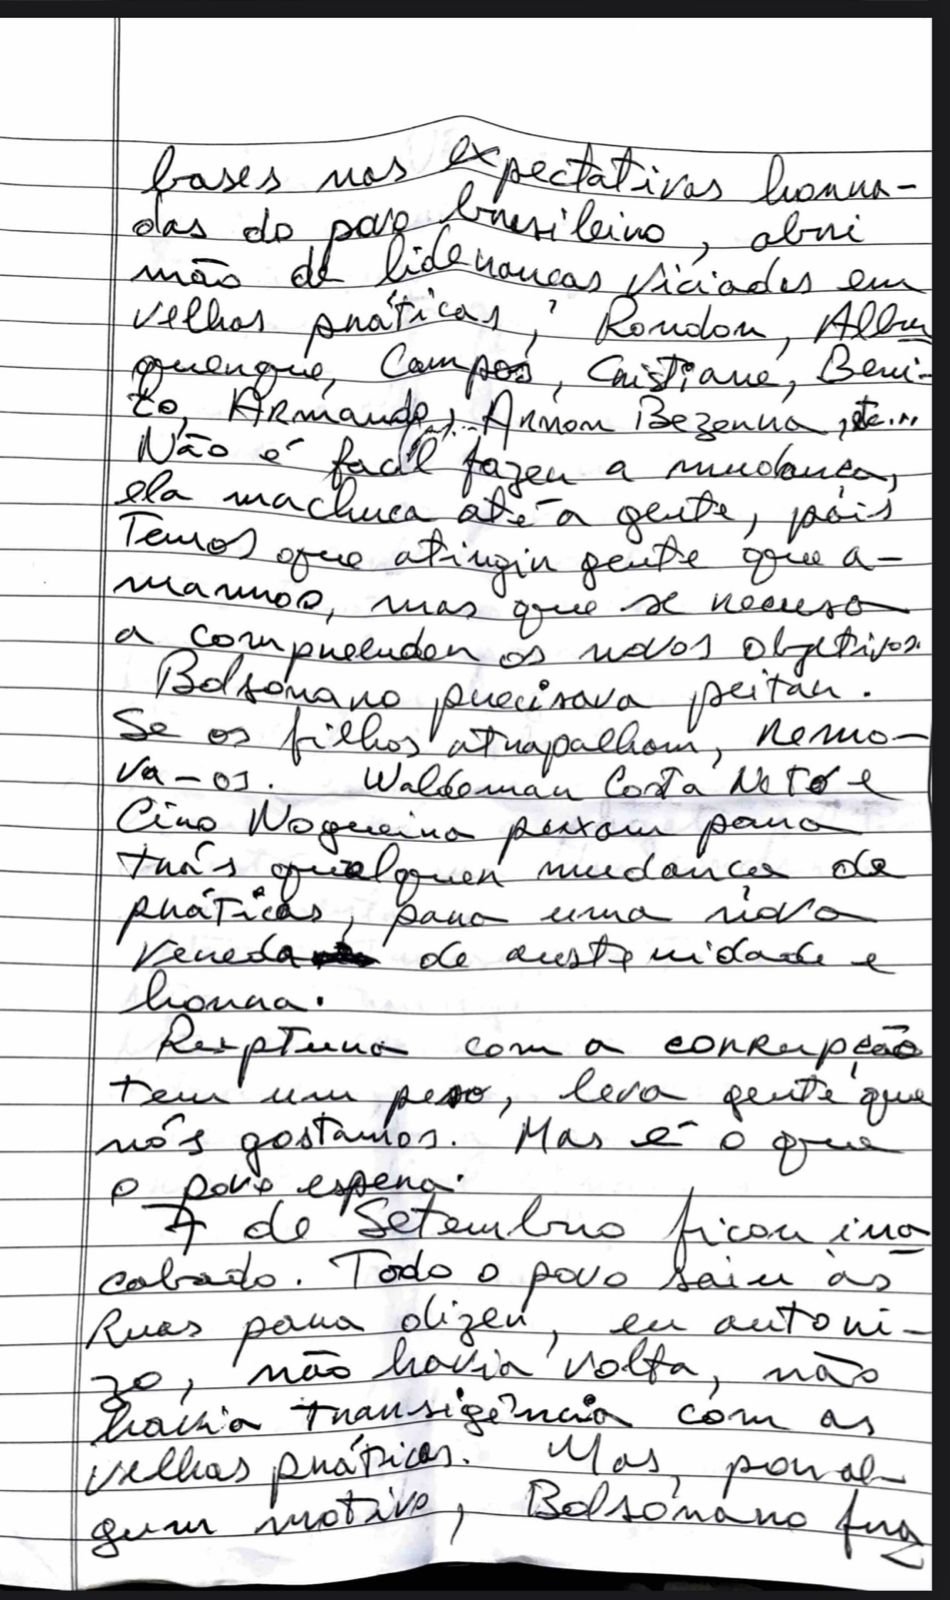 bases nas expectativas honra-
das do povo brasileiro, abri
mão de lideranças viciadas em
velhas práticas, Rondon, Albu
querque, Campos, Cristiane, Beni-
to, Armando, Arnon Bezerra, etc...
Não é facil fazer a mudança,
ela machuca até a gente, pois
Temos que atingir gente que a-
mamos, mas que se recusa
a compreender os novos objetivos.
Bolsonaro precisava peitar.
Se os filhos atrapalham, remo-
va-os. Waldemar Costa Neto e
Ciro Nogueira puxam para
trás qualquer mudança de
práticas, para uma nova
vereda de austeridade e
honra.
Ruptura com a corrupção
tem um peso, leva gente que
nós gostamos. Mas é o que
o povo espera.
7 de Setembro ficou ina
cabado. Todo o povo saiu às
Ruas para dizer, eu autori-
zo, não havia volta, não
havia transigência com as
velhas práticas. Mas, por al-
gum motivo, Bolsonaro fraq